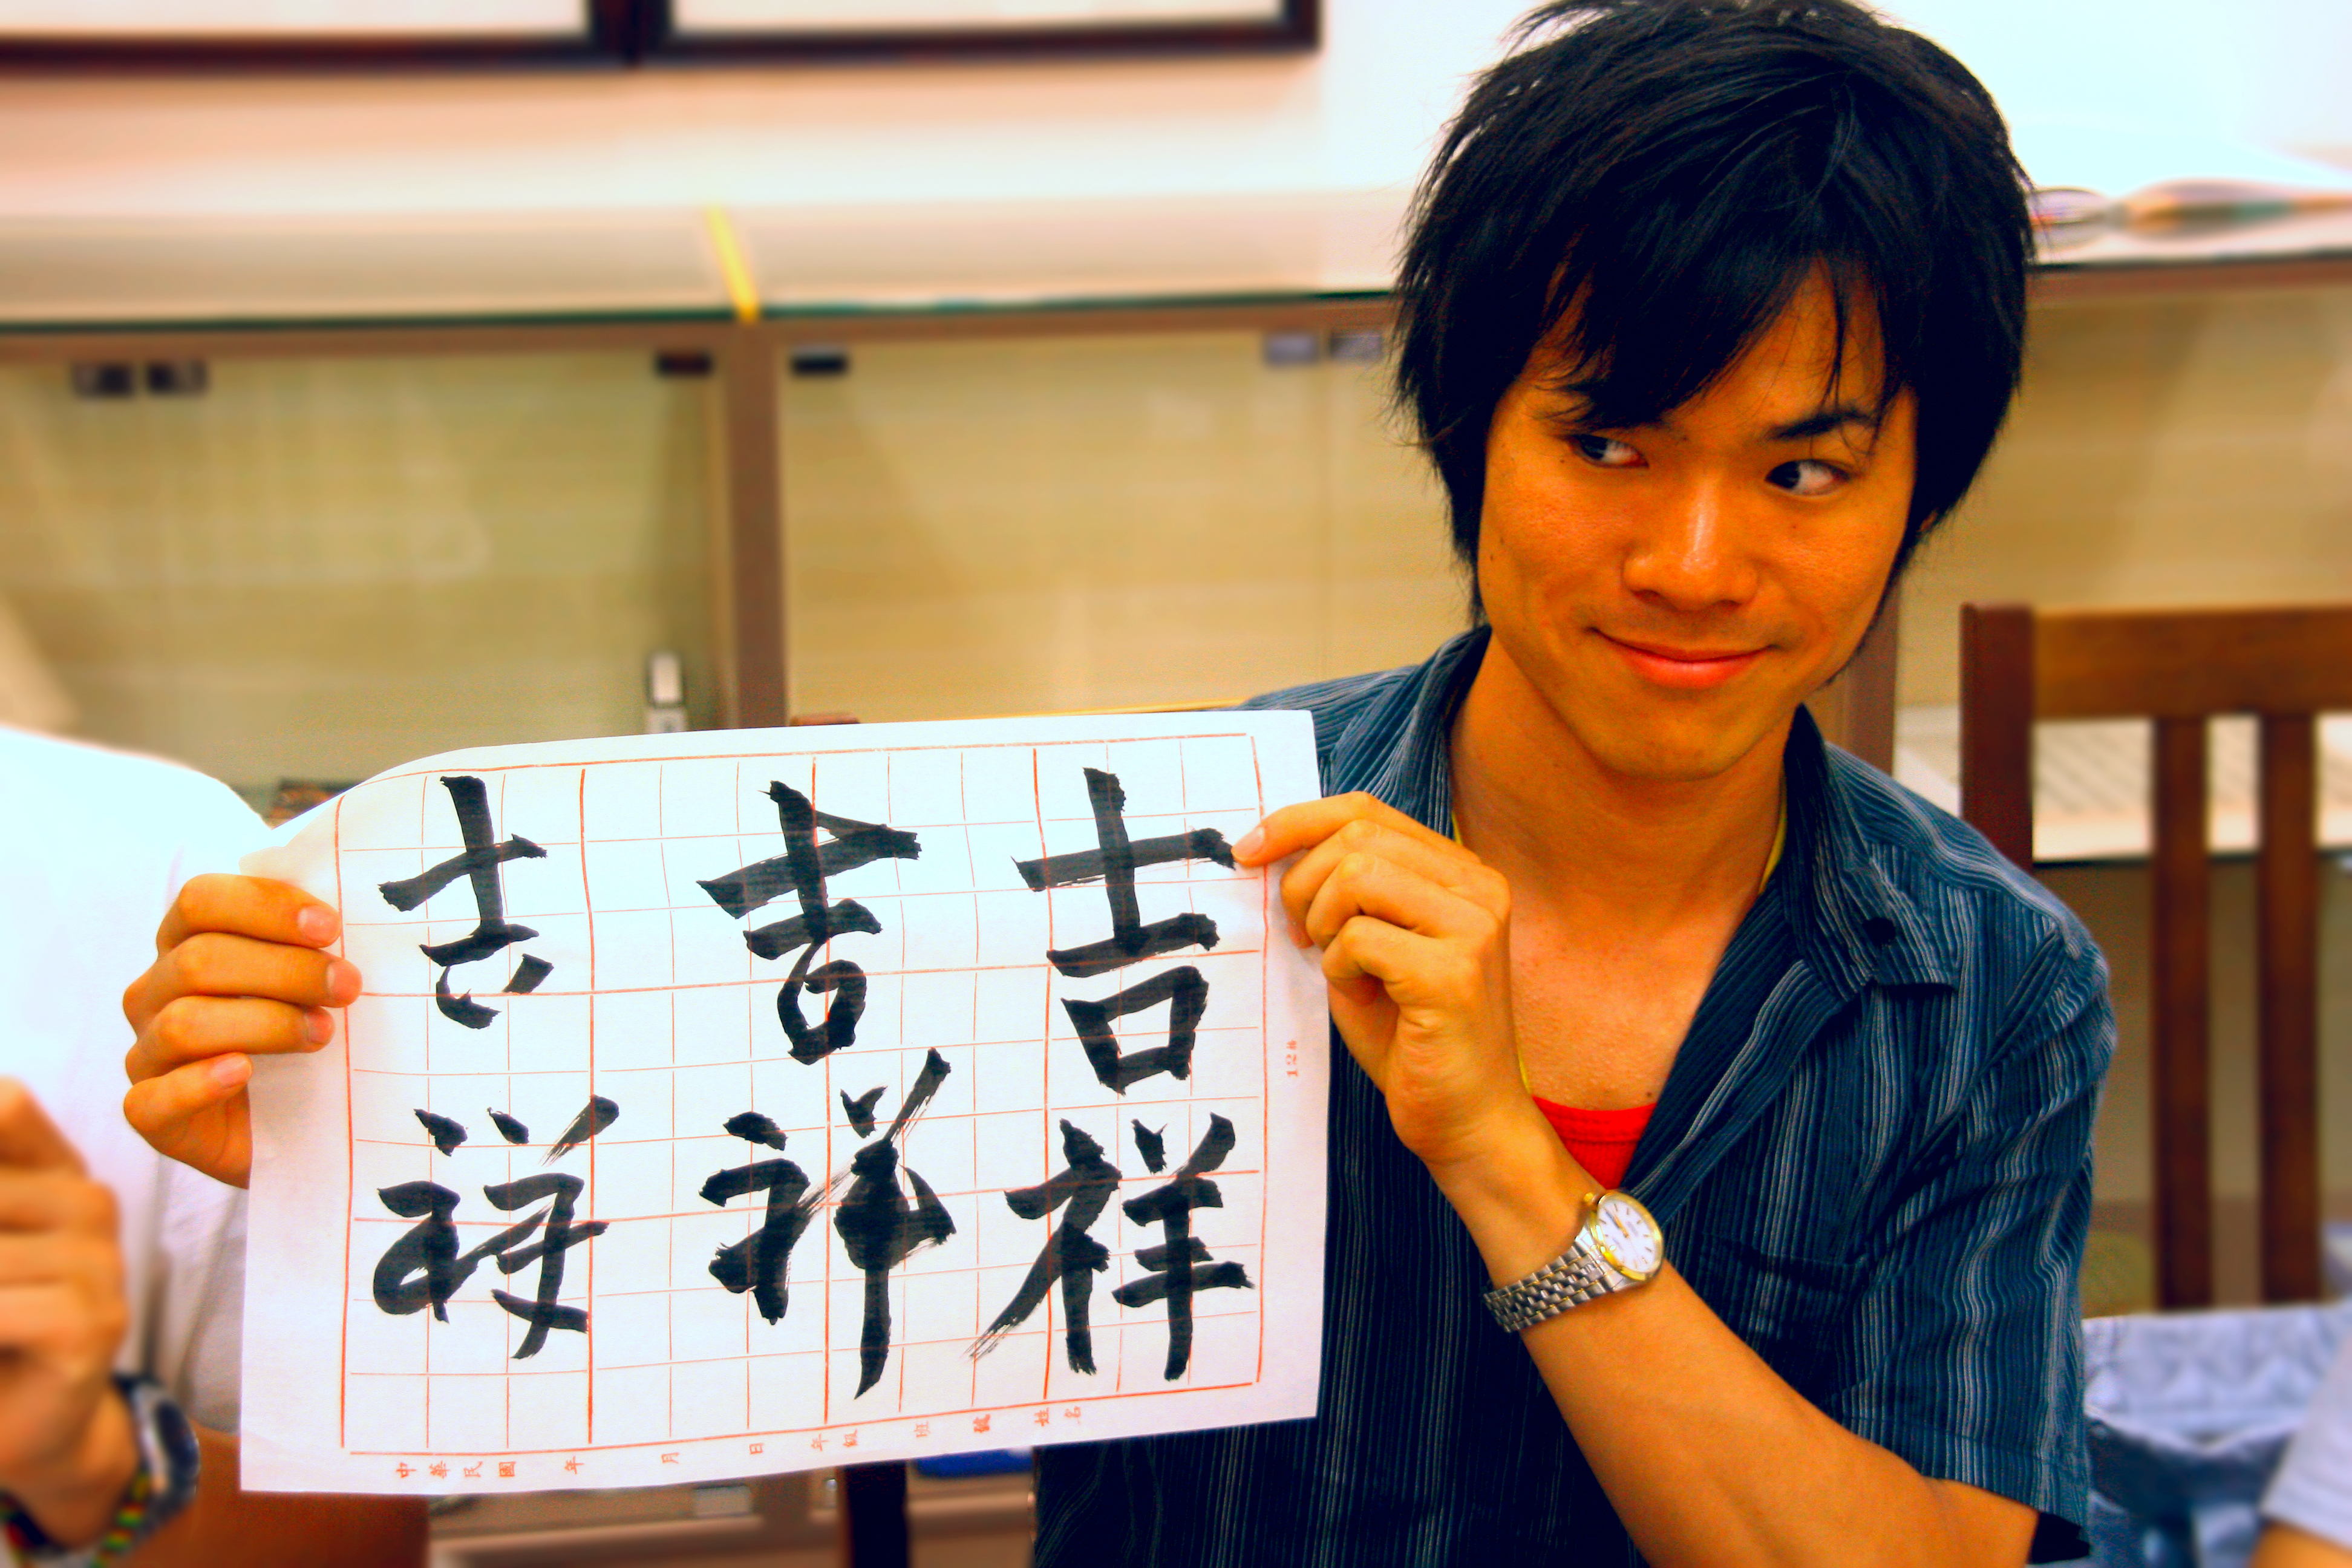 吉祥
吉祥
吉祥
12格
中華民國 年 月 日 年級 班 號 姓名